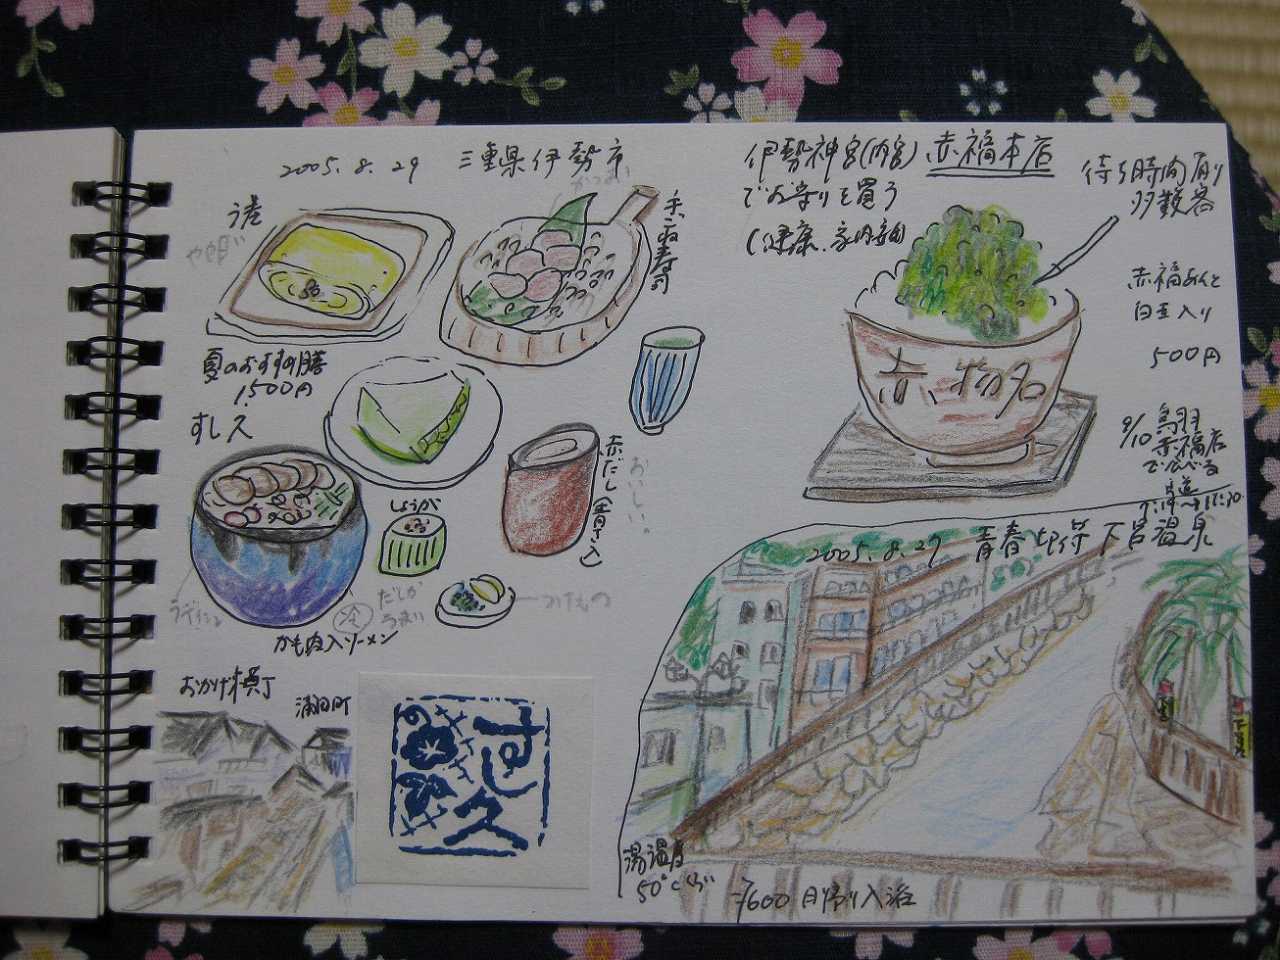 2005.8.29 三重県伊勢市
う巻
手こね寿司
夏のおすすめ膳
1,500円
すし久
しょうが
赤だし(青さ入)
おいしい。
だしが
うまい
つけもの
冷
かも肉入ソーメン
おかげ横丁
すし久
伊勢神宮(内宮)
でお守りを買う
(健康、家内安全)
赤福本店
待ち時間有り
多数客
赤福あんと
白玉入り
500円
赤福
9/10 鳥羽
赤福店
で食べる
2005.8.27 青春切符 下呂温泉
湯温度
50℃くらい
¥600 日帰り入浴